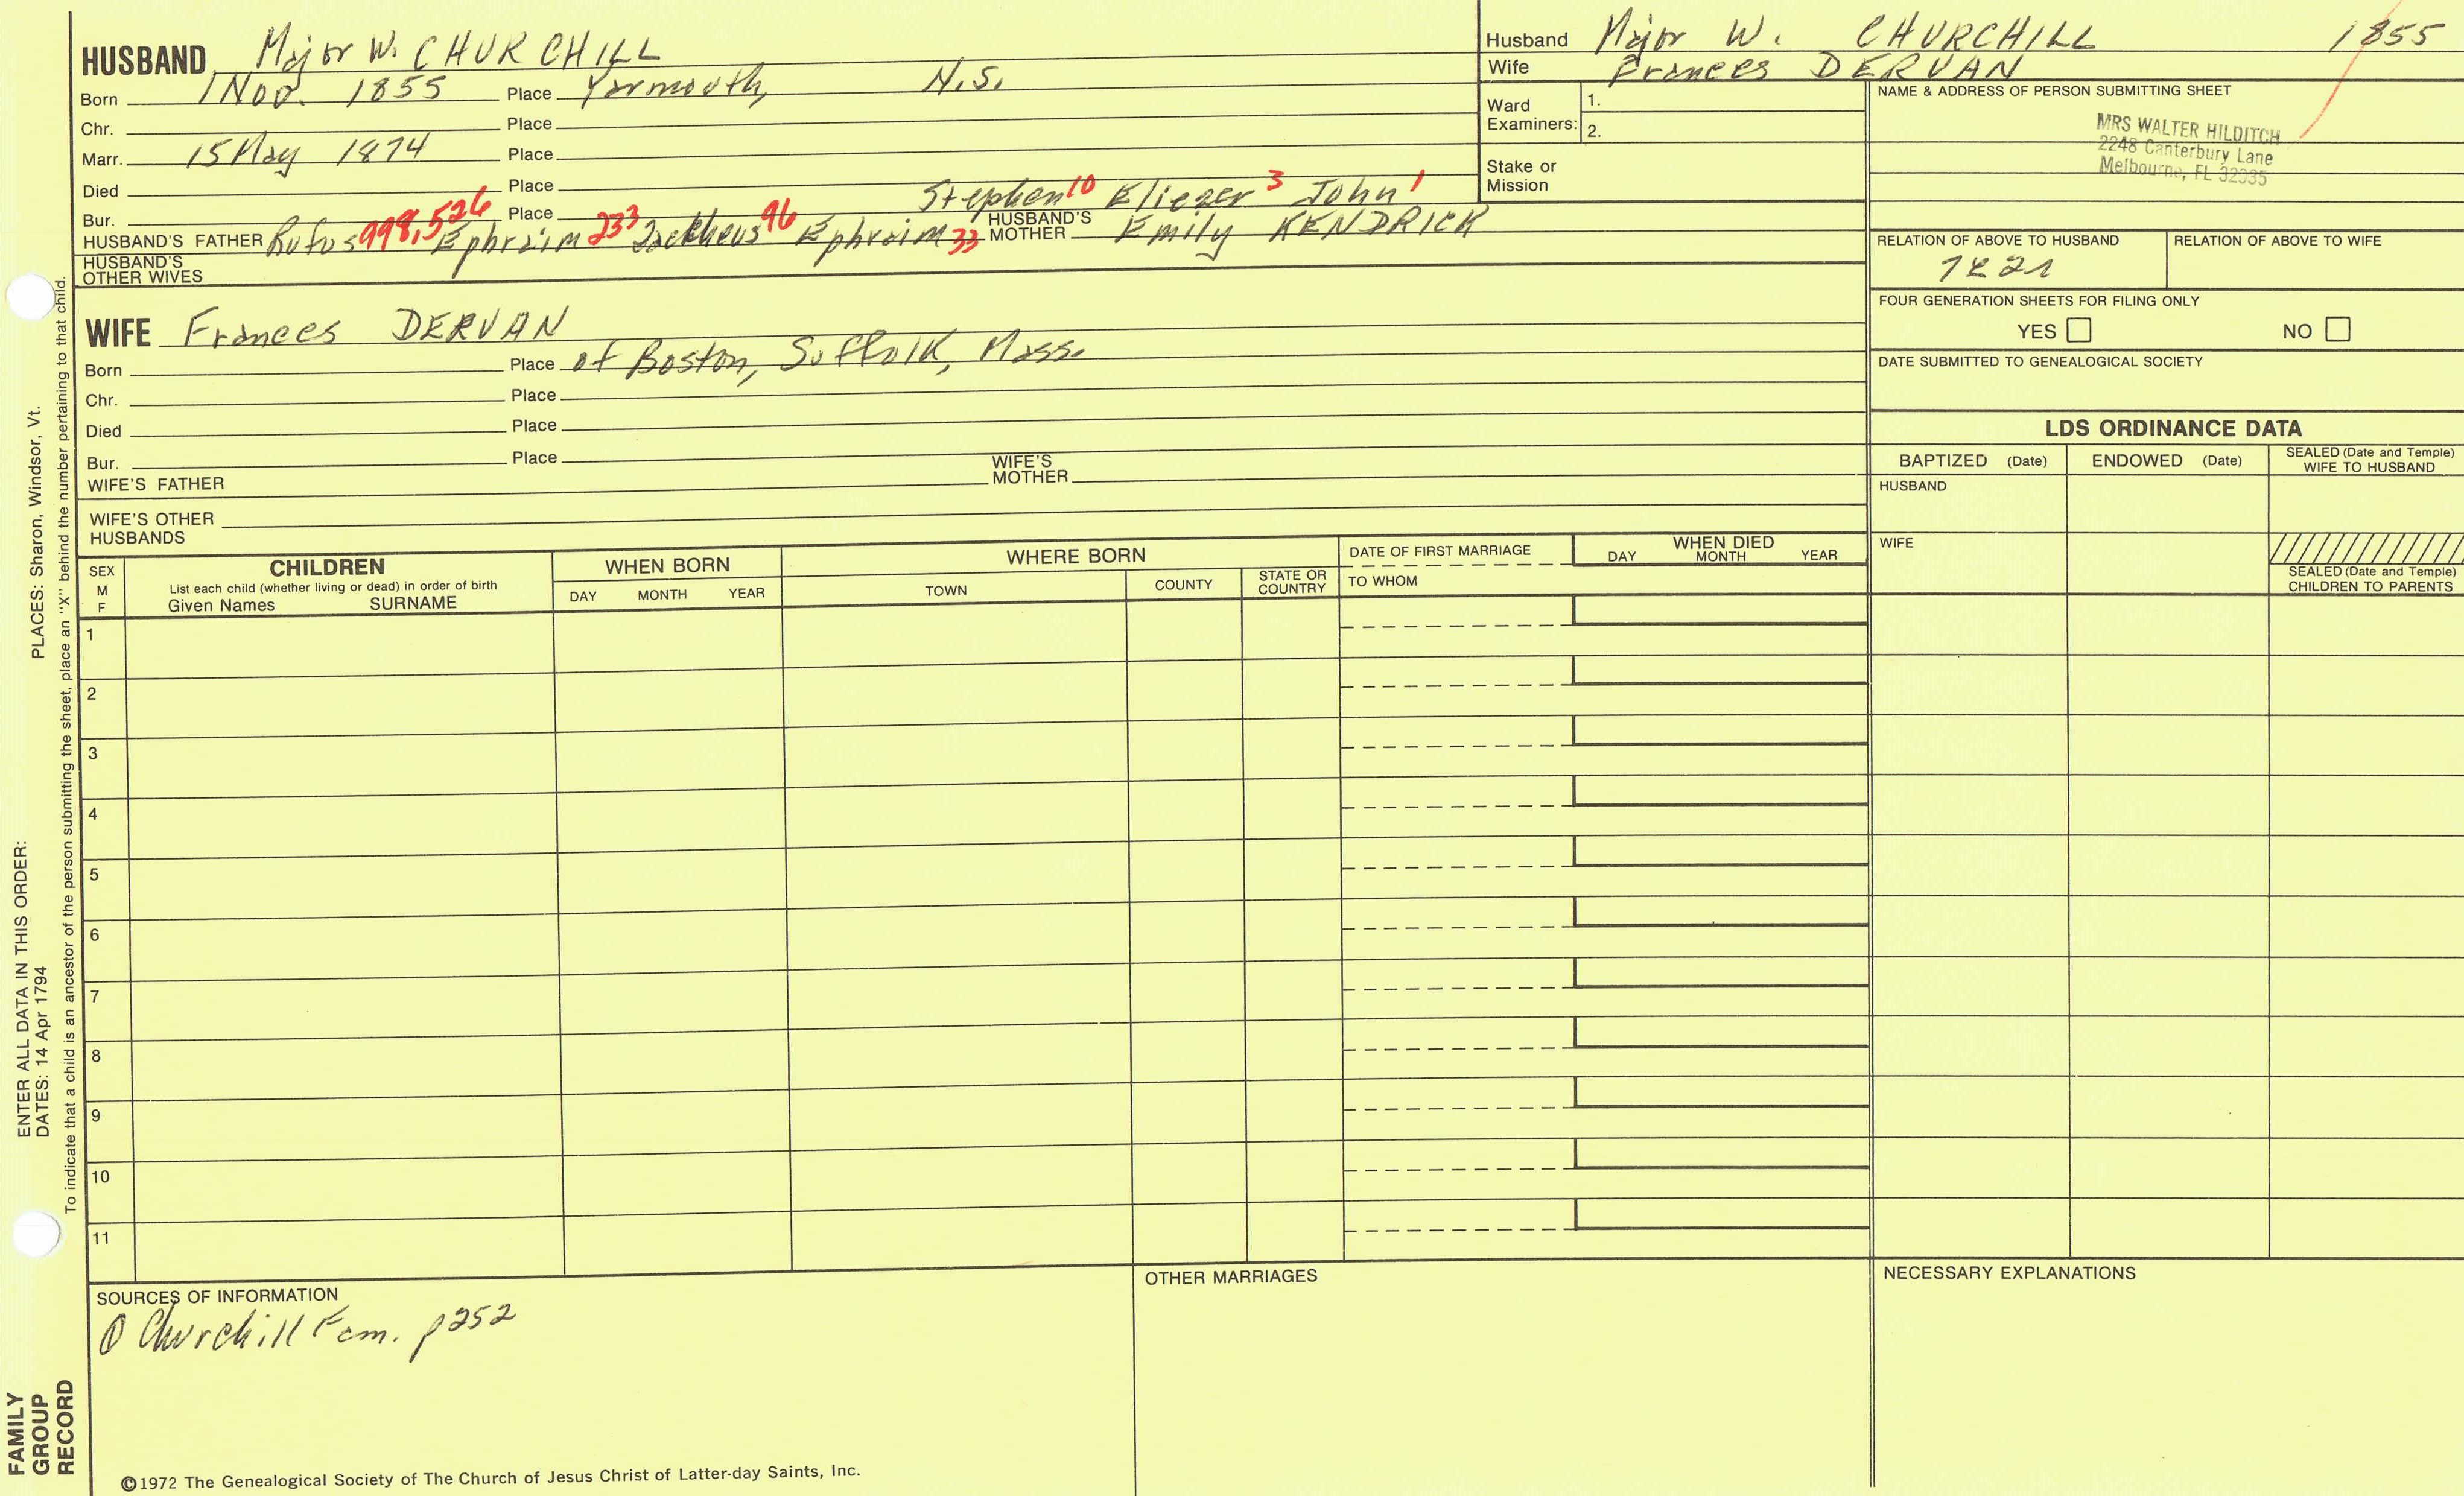 HUSBAND Major W. CHURCHILL
Born 1 Nov. 1855 Place Yarmouth, N.S.
Chr. Place
Marr. 15 May 1874 Place
Died Place
Stephen 10 Eliezer 3 John 1
Bur. Place
HUSBAND'S FATHER Rufus 998,526 Ephraim 233 Zackheus 96 Ephraim 33 HUSBAND'S MOTHER Emily KENDRICK
HUSBAND'S
OTHER WIVES
WIFE Frances DERVAN
Born Place of Boston, Suffolk, Mass.
Chr. Place
Died Place
Bur. Place
WIFE'S FATHER WIFE'S MOTHER
WIFE'S OTHER
HUSBANDS
Husband Major W. CHURCHILL 1855
Wife Frances DERVAN
Ward
Examiners: 1.
2.
Stake or
Mission
NAME & ADDRESS OF PERSON SUBMITTING SHEET
MRS WALTER HILDITCH
2248 Canterbury Lane
Melbourne, FL 32935
RELATION OF ABOVE TO HUSBAND RELATION OF ABOVE TO WIFE
FOUR GENERATION SHEETS FOR FILING ONLY
YES NO
DATE SUBMITTED TO GENEALOGICAL SOCIETY
LDS ORDINANCE DATA
BAPTIZED (Date) ENDOWED (Date) SEALED (Date and Temple)
WIFE TO HUSBAND
HUSBAND
WIFE
SEALED (Date and Temple)
CHILDREN TO PARENTS
SEX
M
F
CHILDREN
List each child (whether living or dead) in order of birth
Given Names SURNAME
WHEN BORN
DAY MONTH YEAR
WHERE BORN
TOWN COUNTY STATE OR
COUNTRY
DATE OF FIRST MARRIAGE
TO WHOM
WHEN DIED
DAY MONTH YEAR
1
2
3
4
5
6
7
8
9
10
11
SOURCES OF INFORMATION
Churchill Fam. p252
OTHER MARRIAGES
NECESSARY EXPLANATIONS
©1972 The Genealogical Society of The Church of Jesus Christ of Latter-day Saints, Inc.
FAMILY
GROUP
RECORD
ENTER ALL DATA IN THIS ORDER:
DATES: 14 Apr 1794 PLACES: Sharon, Windsor, Vt.
To indicate that a child is an ancestor of the person submitting the sheet, place an "X" behind the number pertaining to that child.